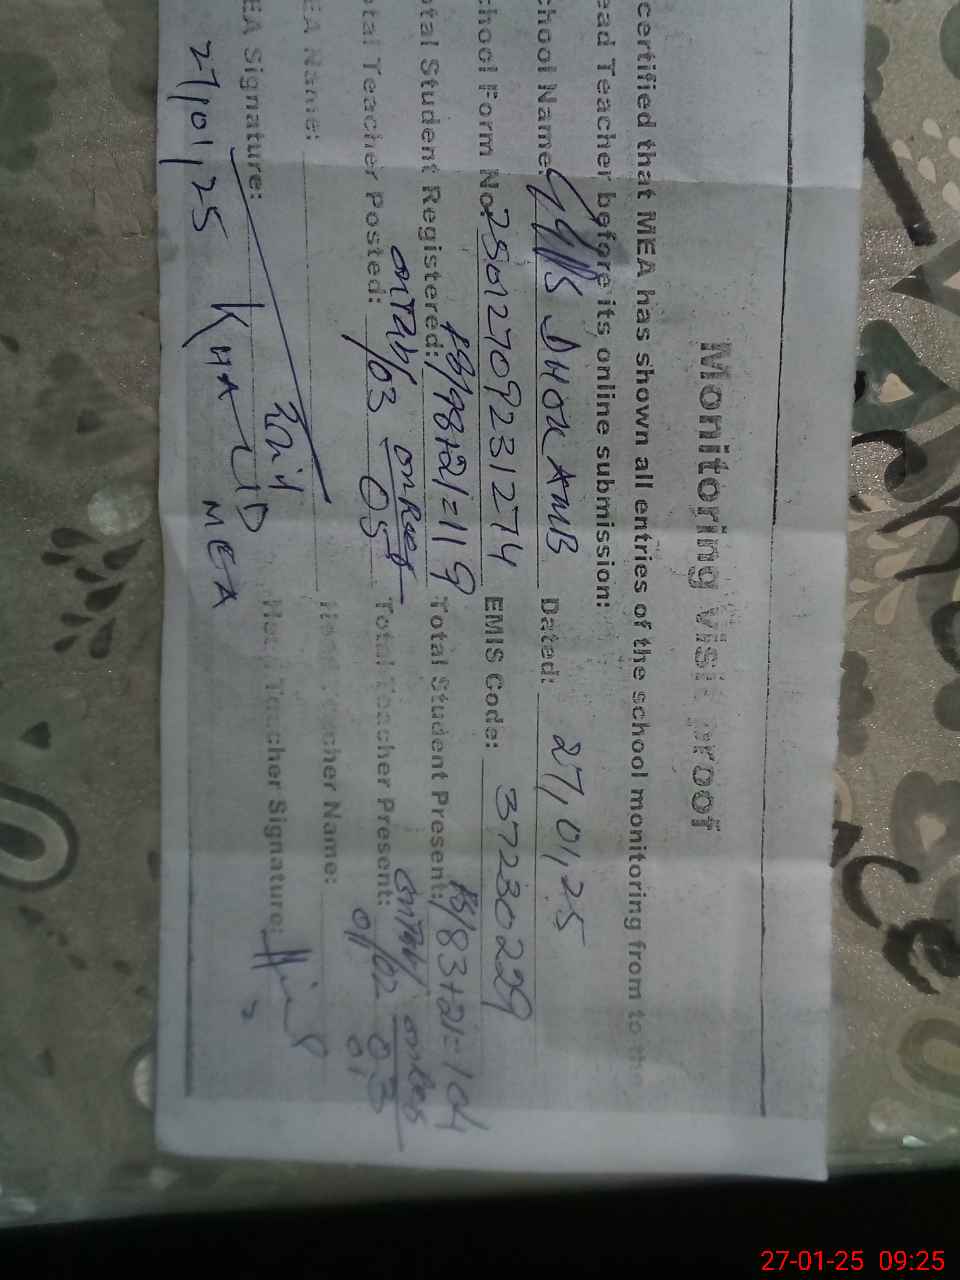 Monitoring visit proof
certified that MEA has shown all entries of the school monitoring from to the
ead Teacher before its online submission:
chool Name: GGPS DHOK AMB Dated: 27,01,25
chool Form No: 25012709231274 EMIS Code: 37230229
otal Student Registered: 98+21=119 Total Student Present: 83+21=104
onTab onRec onTab onRec
otal Teacher Posted: 03 05 Total Teacher Present: 02 03
01 01
EA Name: Head Teacher Name:
EA Signature: Head Teacher Signature:
27,01,25 KHALID MEA
27-01-25 09:25